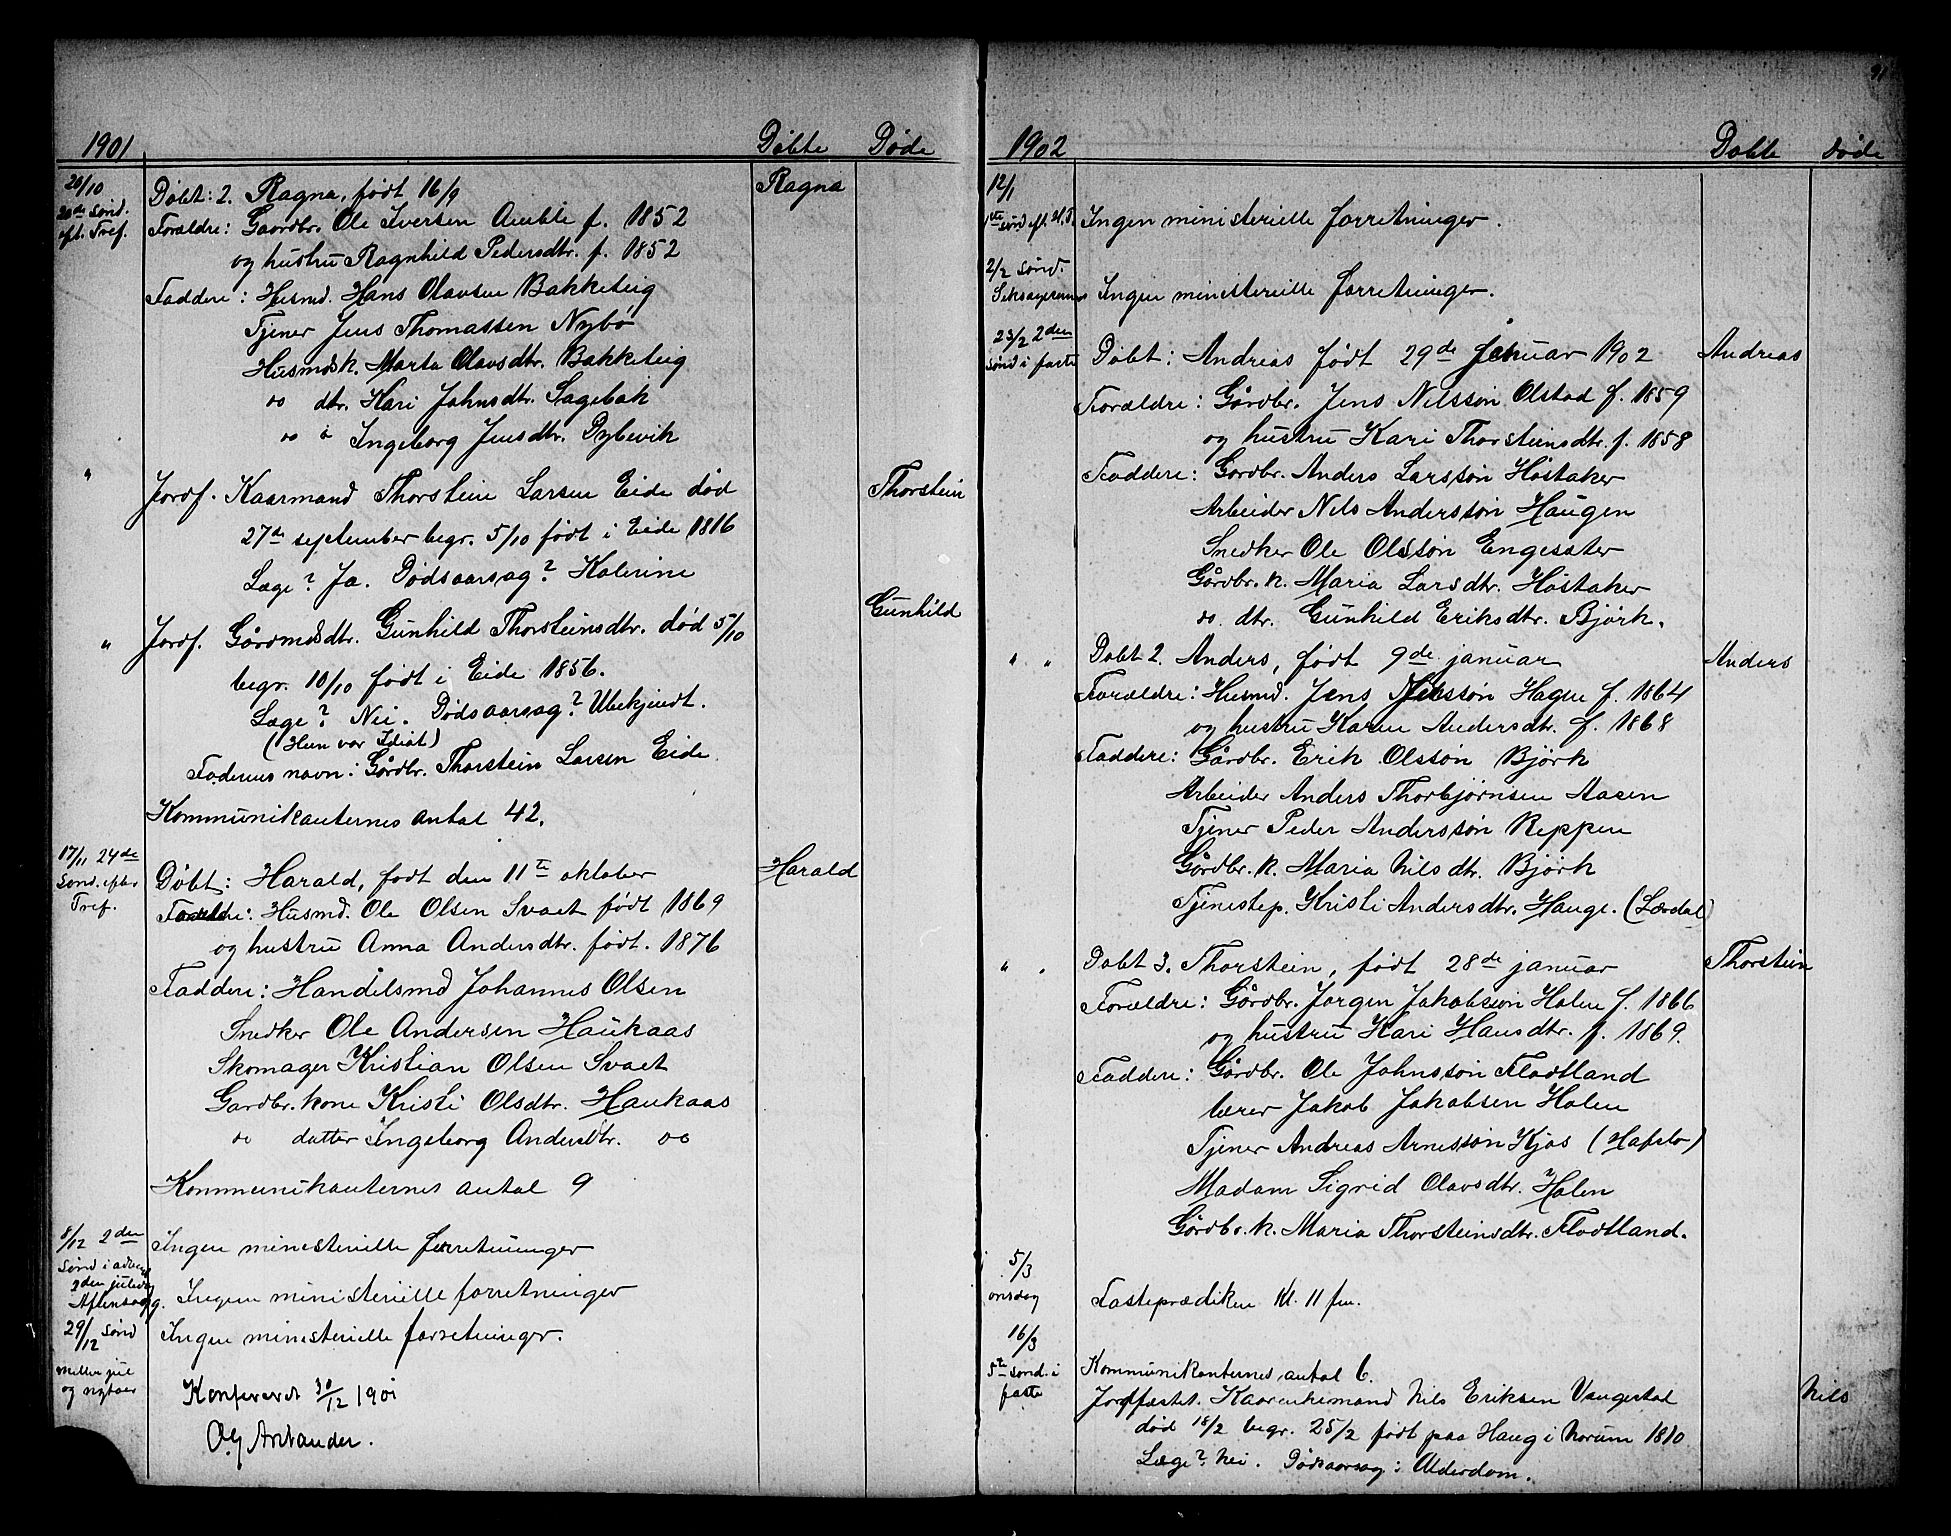 1901 Døbte Døde
20/10 Døbt: 2. Ragna, født 16/9 Ragna
20de Sønd. Forældre: Gaardbr. Ole Iversen Amble f. 1852
eft. Tref. og hustru Ragnhild Pedersdtr. f. 1852
Faddere: Husmd. Hans Olavsen Bakketeig
Tjener Jens Thomassen Nybø
Husmdsk. Marta Olavsdtr. Bakketeig
do dtr. Kari Johnsdtr. Sagebak
do " Ingeborg Jensdtr. Dybevik
" Jordf. Kaarmand Thorstein Larsen Eide død Thorstein
27de september begr. 5/10 født i Eide 1816
Læge? Ja. Dødsaarsag? Katerine
Gunhild
" Jordf. Gårdmdsdtr. Gunhild Thorsteinsdtr. død 5/10
begr. 10/10 født i Eide 1856.
Læge? Nei. Dødsaarsag? Ubekjendt.
(Hun var Idiot)
Faderens navn: Gårdbr. Thorstein Larsen Eide
Kommunikanternes antal 42.
17/11 24de Døbt: Harald, født den 11te oktober Harald
Sønd. efter Forældre: Husmd. Ole Olsen Svaet født 1869
Tref. og hustru Anna Andersdtr. født. 1876
Faddere: Handelsmd Johannes Olsen
Snedker Ole Andersen Haukaas
Skomager Kristian Olsen Svaet
Gardbr. kone Kristi Olsdtr. Haukaas
do datter Ingeborg Andersdtr. do
Kommunikanternes antal 9
8/12 2den Ingen ministerielle forretninger
Sønd i advent
2den juledag
Aftensang. Ingen ministerielle forretninger
29/12 Sønd Ingen ministerielle forretninger.
mellem jul
og nytaar
Konfereret 30/12 1901
1902 Døbte Døde
12/1
1ste sønd eft. H.3.K. Ingen ministerielle forretninger.
2/2 Sønd.
Seksagesima Ingen ministerielle forretninger.
23/2 2den
Sønd i faste Døbt: Andreas født 29de Januar 1902 Andreas
Forældre: Gårdbr. Jens Nilssøn Olstad f. 1859
og hustru Kari Thorsteinsdtr. f. 1858
Faddere: Gårdbr. Anders Larssøn Høstaker
Arbeider Nils Anderssøn Haugen
Snedker Ole Olssøn Engesæter
Gårdbr. k. Maria Larsdtr. Høstaker
do. dtr. Gunhild Eriksdtr. Bjørk.
" " Døbt 2. Anders, født 9de januar Anders
Forældre: Husmd. Jens Nilssøn Hagen f. 1864
og hustru Karen Andersdtr. f. 1868
Faddere: Gårdbr. Erik Olssøn Bjørk
Arbeider Anders Thorbjørnsen Aasen
Tjener Peder Anderssøn Reppen
Gårdbr. k. Maria Nilsdtr. Bjørk
Tjenestep. Kristi Andersdtr. Hauge. (Lærdal)
" " Døbt 3. Thorstein, født 28de januar Thorstein
Forældre: Gårdbr. Jørgen Jakobssøn Holen f. 1866
og hustru Kari Hansdtr. f. 1869.
Faddere: Gårdbr. Ole Johnssøn Flodtland
lærer Jakob Jakobsen Holen
Tjener Andreas Arnessøn Kjos (Hafslo)
Madam Sigrid Olavsdtr. Holen
Gårdbr. k. Maria Thorsteinsdtr. Flodtland.
5/3
onsdag Fasteprædiken Kl. 11 fm.
16/3
5te sønd. i Kommunikanternes antal 6.
faste Jordfæstet. Kaarenkemand Nils Eriksen Vangestad Nils
død 18/2 begr. 25/2 født paa Haug i Norum 1810
Læge? nei. Dødsaarsag: Alderdom.